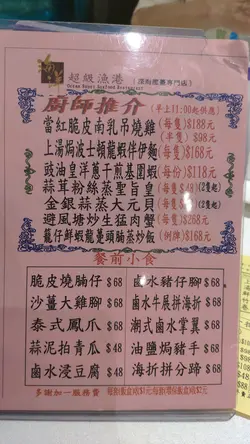 超級漁港 (深海龍躉專門店)
Ocean Empire Seafood Restaurant
廚師推介 (早上11:00起供應)
當紅脆皮南乳吊燒雞 (每隻)$188元
(半隻) $98元
上湯焗波士頓龍蝦伴伊麵 (每份)$168元
豉油皇洋蔥干煎基圍蝦 (每份)$118元
蒜茸粉絲蒸聖旨皇 (每隻$48)(2隻起)
金銀蒜蒸大元貝 (每隻$)(2隻起)
避風塘炒生猛肉蟹 (每隻)$268元
籠仔鮮蝦龍躉頭腩蒸炒飯 (例牌)$168元
餐前小食
脆皮燒腩仔 $68
沙薑大雞腳 $68
泰式鳳爪 $68
蒜泥拍青瓜 $48
鹵水浸豆腐 $48
鹵水豬仔腳 $68
鹵水牛展拼海折 $68
潮式鹵水掌翼 $68
油鹽焗豬手 $68
海折拼分蹄 $68
多謝加一服務費